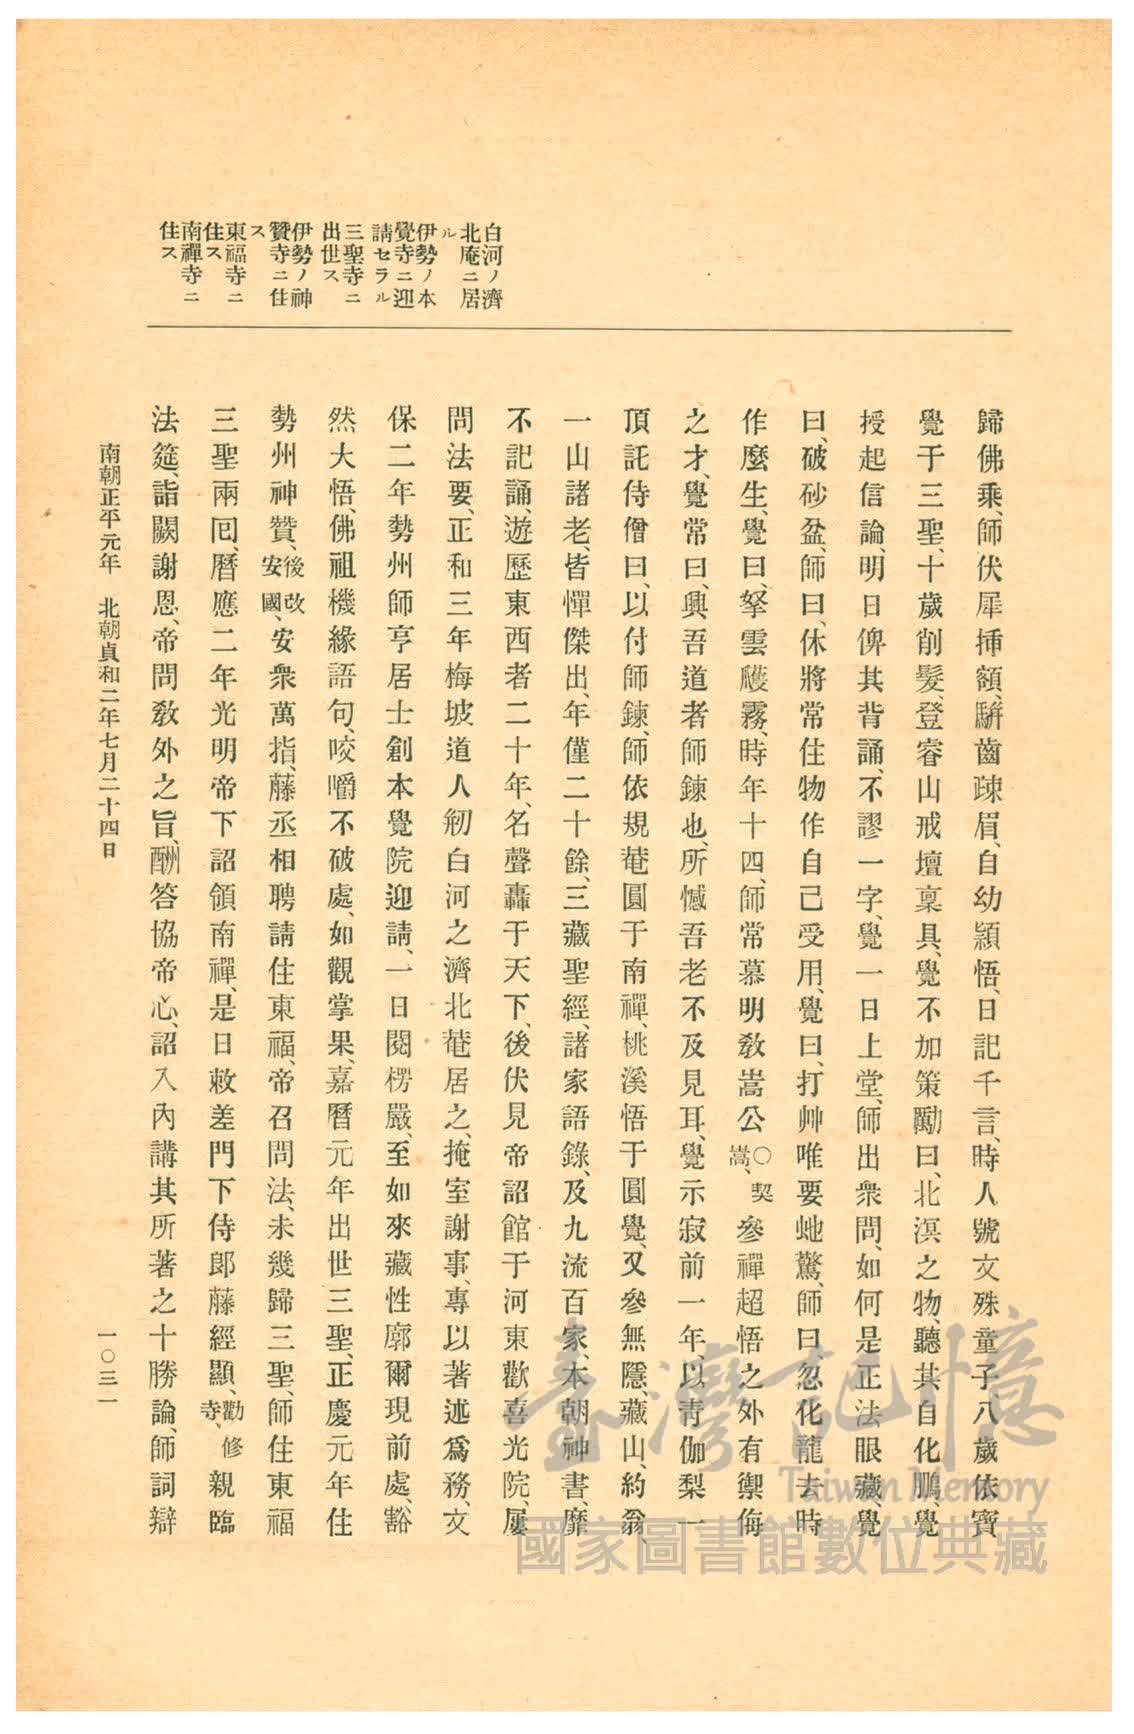 白河ノ濟
北庵ニ居
ル
伊勢ノ本
覺寺ニ迎
請セラル
三聖寺ニ
出世ス
伊勢ノ神
贊寺ニ住
ス
東福寺ニ
住ス
南禪寺ニ
住ス
歸佛乘、師伏犀揷額、騈齒疎眉、自幼穎悟、日記千言、時人號文殊童子、八歲依寶
覺于三聖、十歲削髮、登睿山戒壇稟具、覺不加策勵曰、北溟之物、聽其自化鵬、覺
授起信論、明日俾其背誦、不謬一字、覺一日上堂、師出衆問、如何是正法眼藏、覺
曰、破砂盆、師曰、休將常住物作自己受用、覺曰、打艸唯要虵驚、師曰、忽化龍去時
作麼生、覺曰、拏雲雘霧、時年十四、師常慕明敎嵩公〇契嵩、參禪超悟之外有禦侮
之才、覺常曰、興吾道者師鍊也、所憾吾老不及見耳、覺示寂前一年、以靑伽梨一
頂託侍僧曰、以付師鍊、師依規菴圓于南禪、桃溪悟于圓覺、又參無隱、藏山、約翁、
一山諸老、皆憚傑出、年僅二十餘、三藏聖經、諸家語錄、及九流百家、本朝神書、靡
不記誦、遊歷東西者二十年、名聲轟于天下、後伏見帝詔館于河東歡喜光院、屢
問法要、正和三年梅坡道人剏白河之濟北菴居之、掩室謝事、專以著述爲務、文
保二年勢州師亨居士創本覺院迎請、一日閱楞嚴、至如來藏性廓爾現前處、豁
然大悟、佛祖機緣語句、咬嚼不破處、如觀掌果、嘉曆元年出世三聖、正慶元年住
勢州神贊、後改安國、安衆萬指、藤丞相聘請住東福、帝召問法、未幾歸三聖、師住東福
三聖兩囘、曆應二年光明帝下詔領南禪、是日敕差門下侍郎藤經顯、勸修寺、親臨
法筵、詣闕謝恩、帝問敎外之旨、酬答協帝心、詔入內講其所著之十勝論、師詞辯
南朝正平元年　北朝貞和二年七月二十四日
一〇三一
臺灣記憶
Taiwan Memory
國家圖書館數位典藏